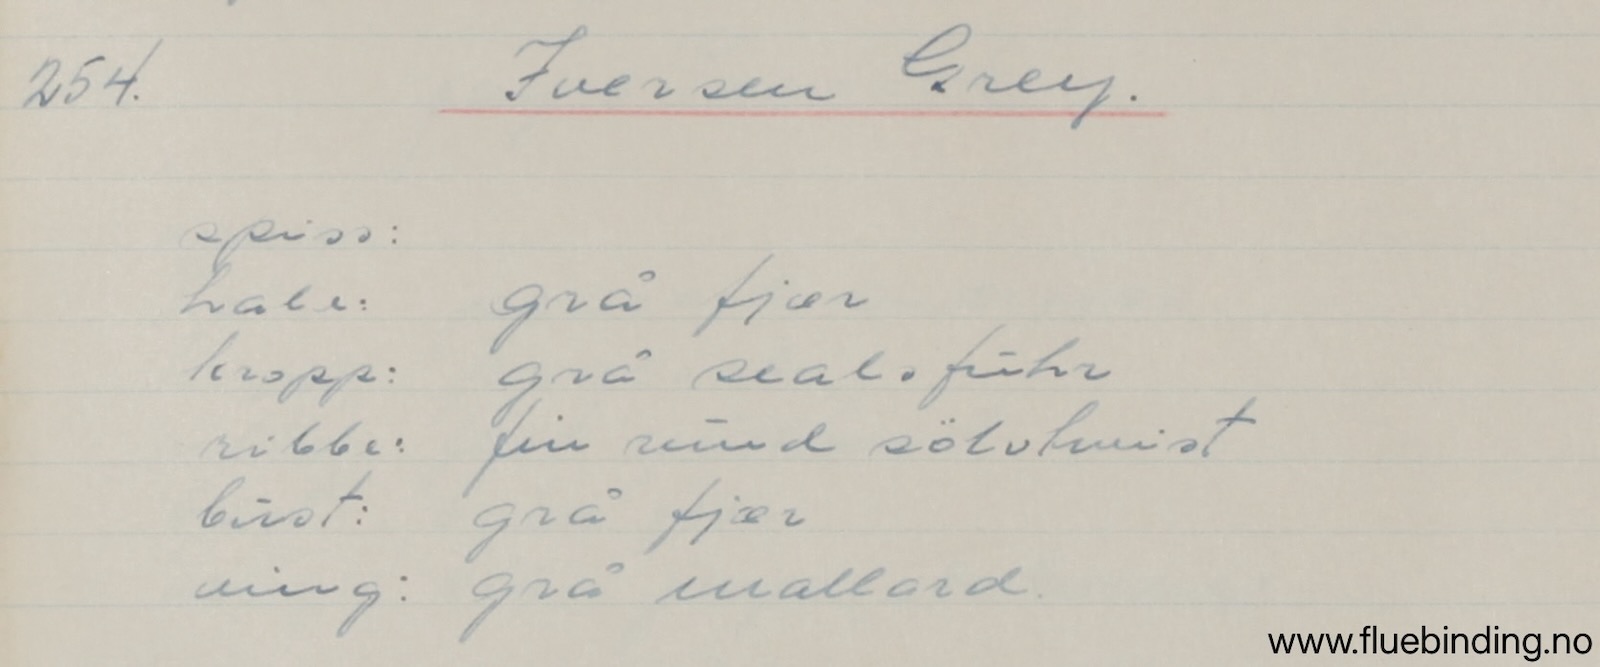 254. Iversen Grey.
spiss:
hale: grå fjær
kropp: grå seal.fuhr
ribbe: fin rund sölvtwist
burst: grå fjær
ving: grå mallard.
www.fluebinding.no